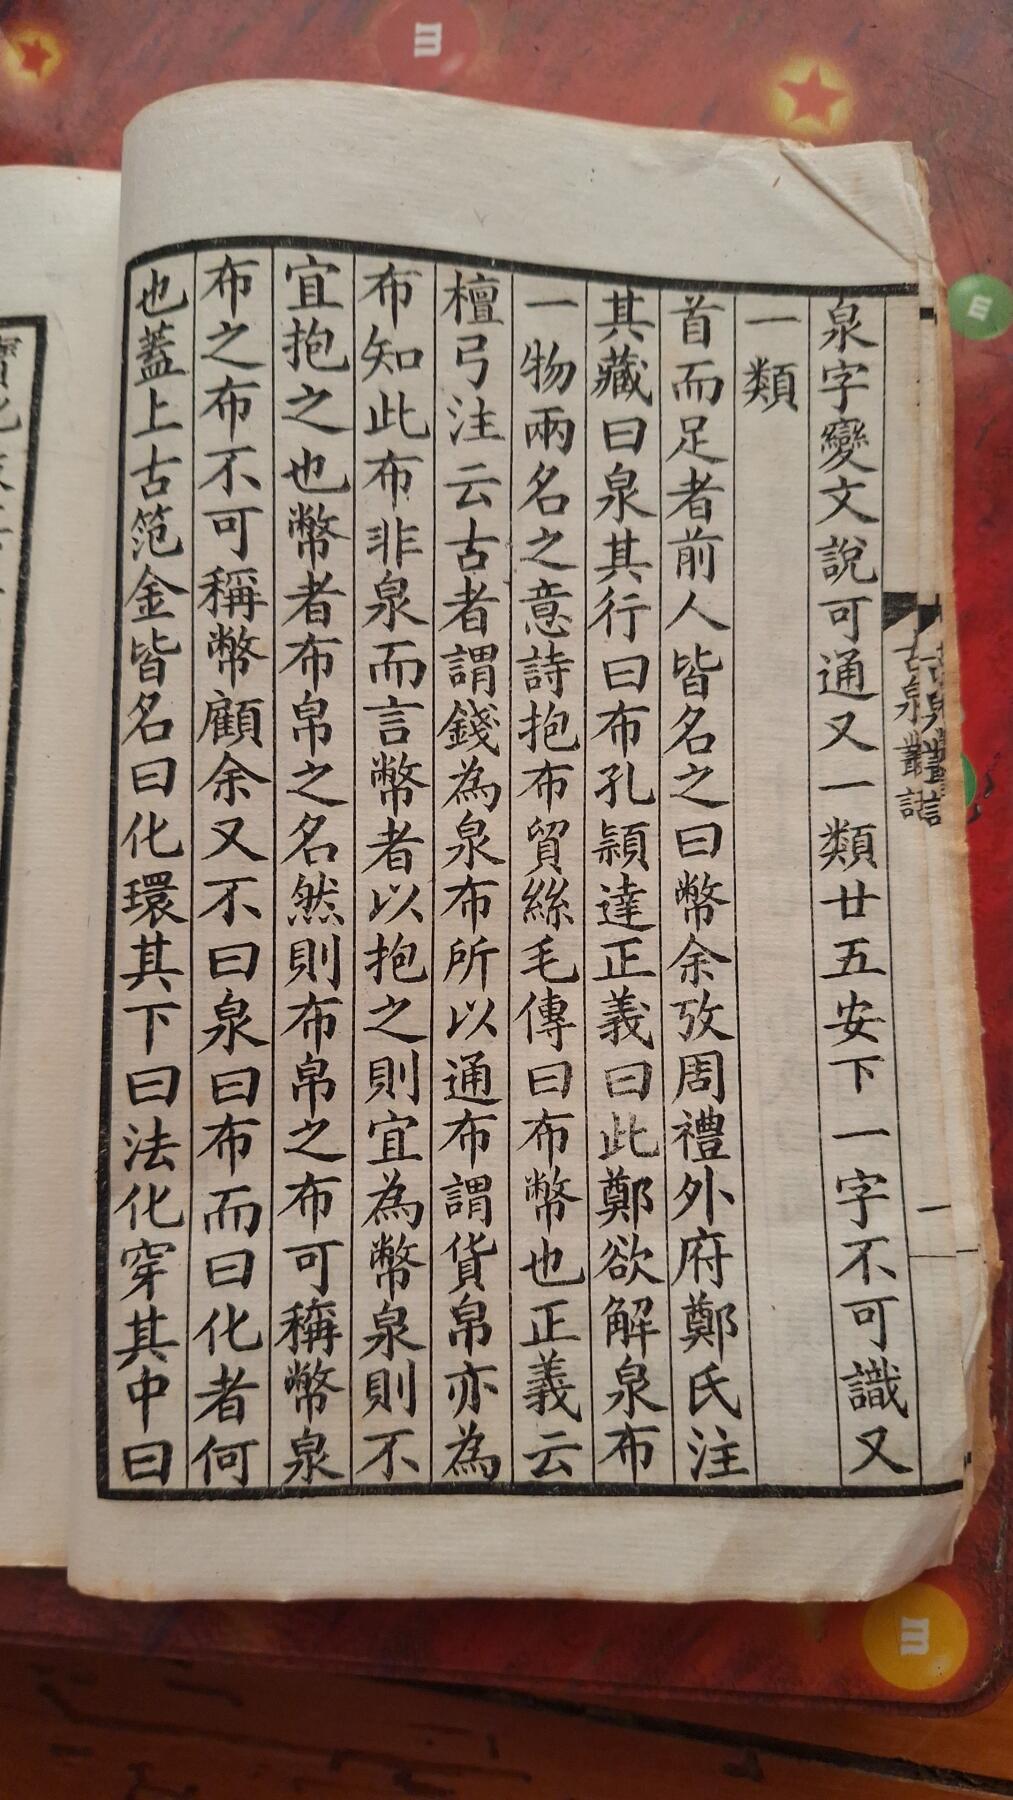 泉字變文說可通又一類廿五安下一字不可識又
一類
首而足者前人皆名之曰幣余攷周禮外府鄭氏注
其藏曰泉其行曰布孔穎達正義曰此鄭欲解泉布
一物兩名之意詩抱布貿絲毛傳曰布幣也正義云
檀弓注云古者謂錢為泉布所以通布謂貨帛亦為
布知此布非泉而言幣者以抱之則宜為幣泉則不
宜抱之也幣者布帛之名然則布帛之布可稱幣泉
布之布不可稱幣顧余又不曰泉曰布而曰化者何
也蓋上古笵金皆名曰化環其下曰法化穿其中曰
古泉叢話
一
m
m
m